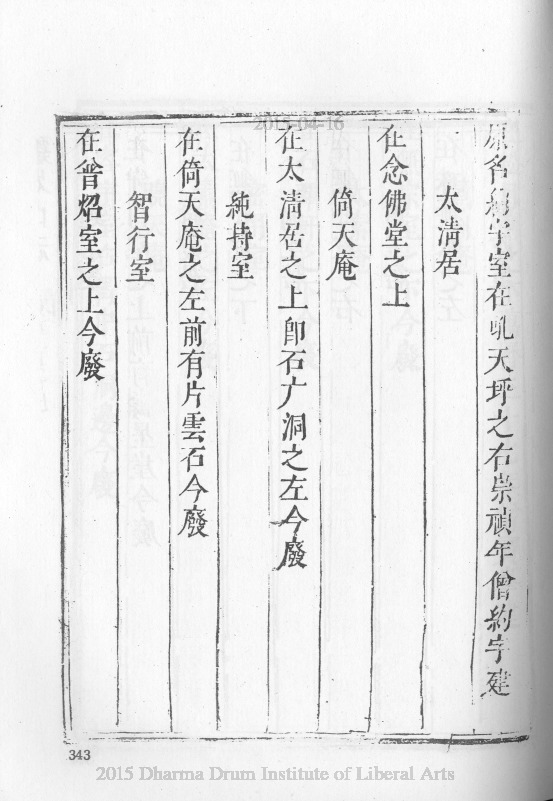 2015-04-16
原名約宇室在吼天坪之右崇禎年僧約宇建
太淸居
在念佛堂之上
倚天庵
在太淸居之上卽石广洞之左今廢
純持室
在倚天庵之左前有片雲石今廢
智行室
在普炤室之上今廢
343
2015 Dharma Drum Institute of Liberal Arts